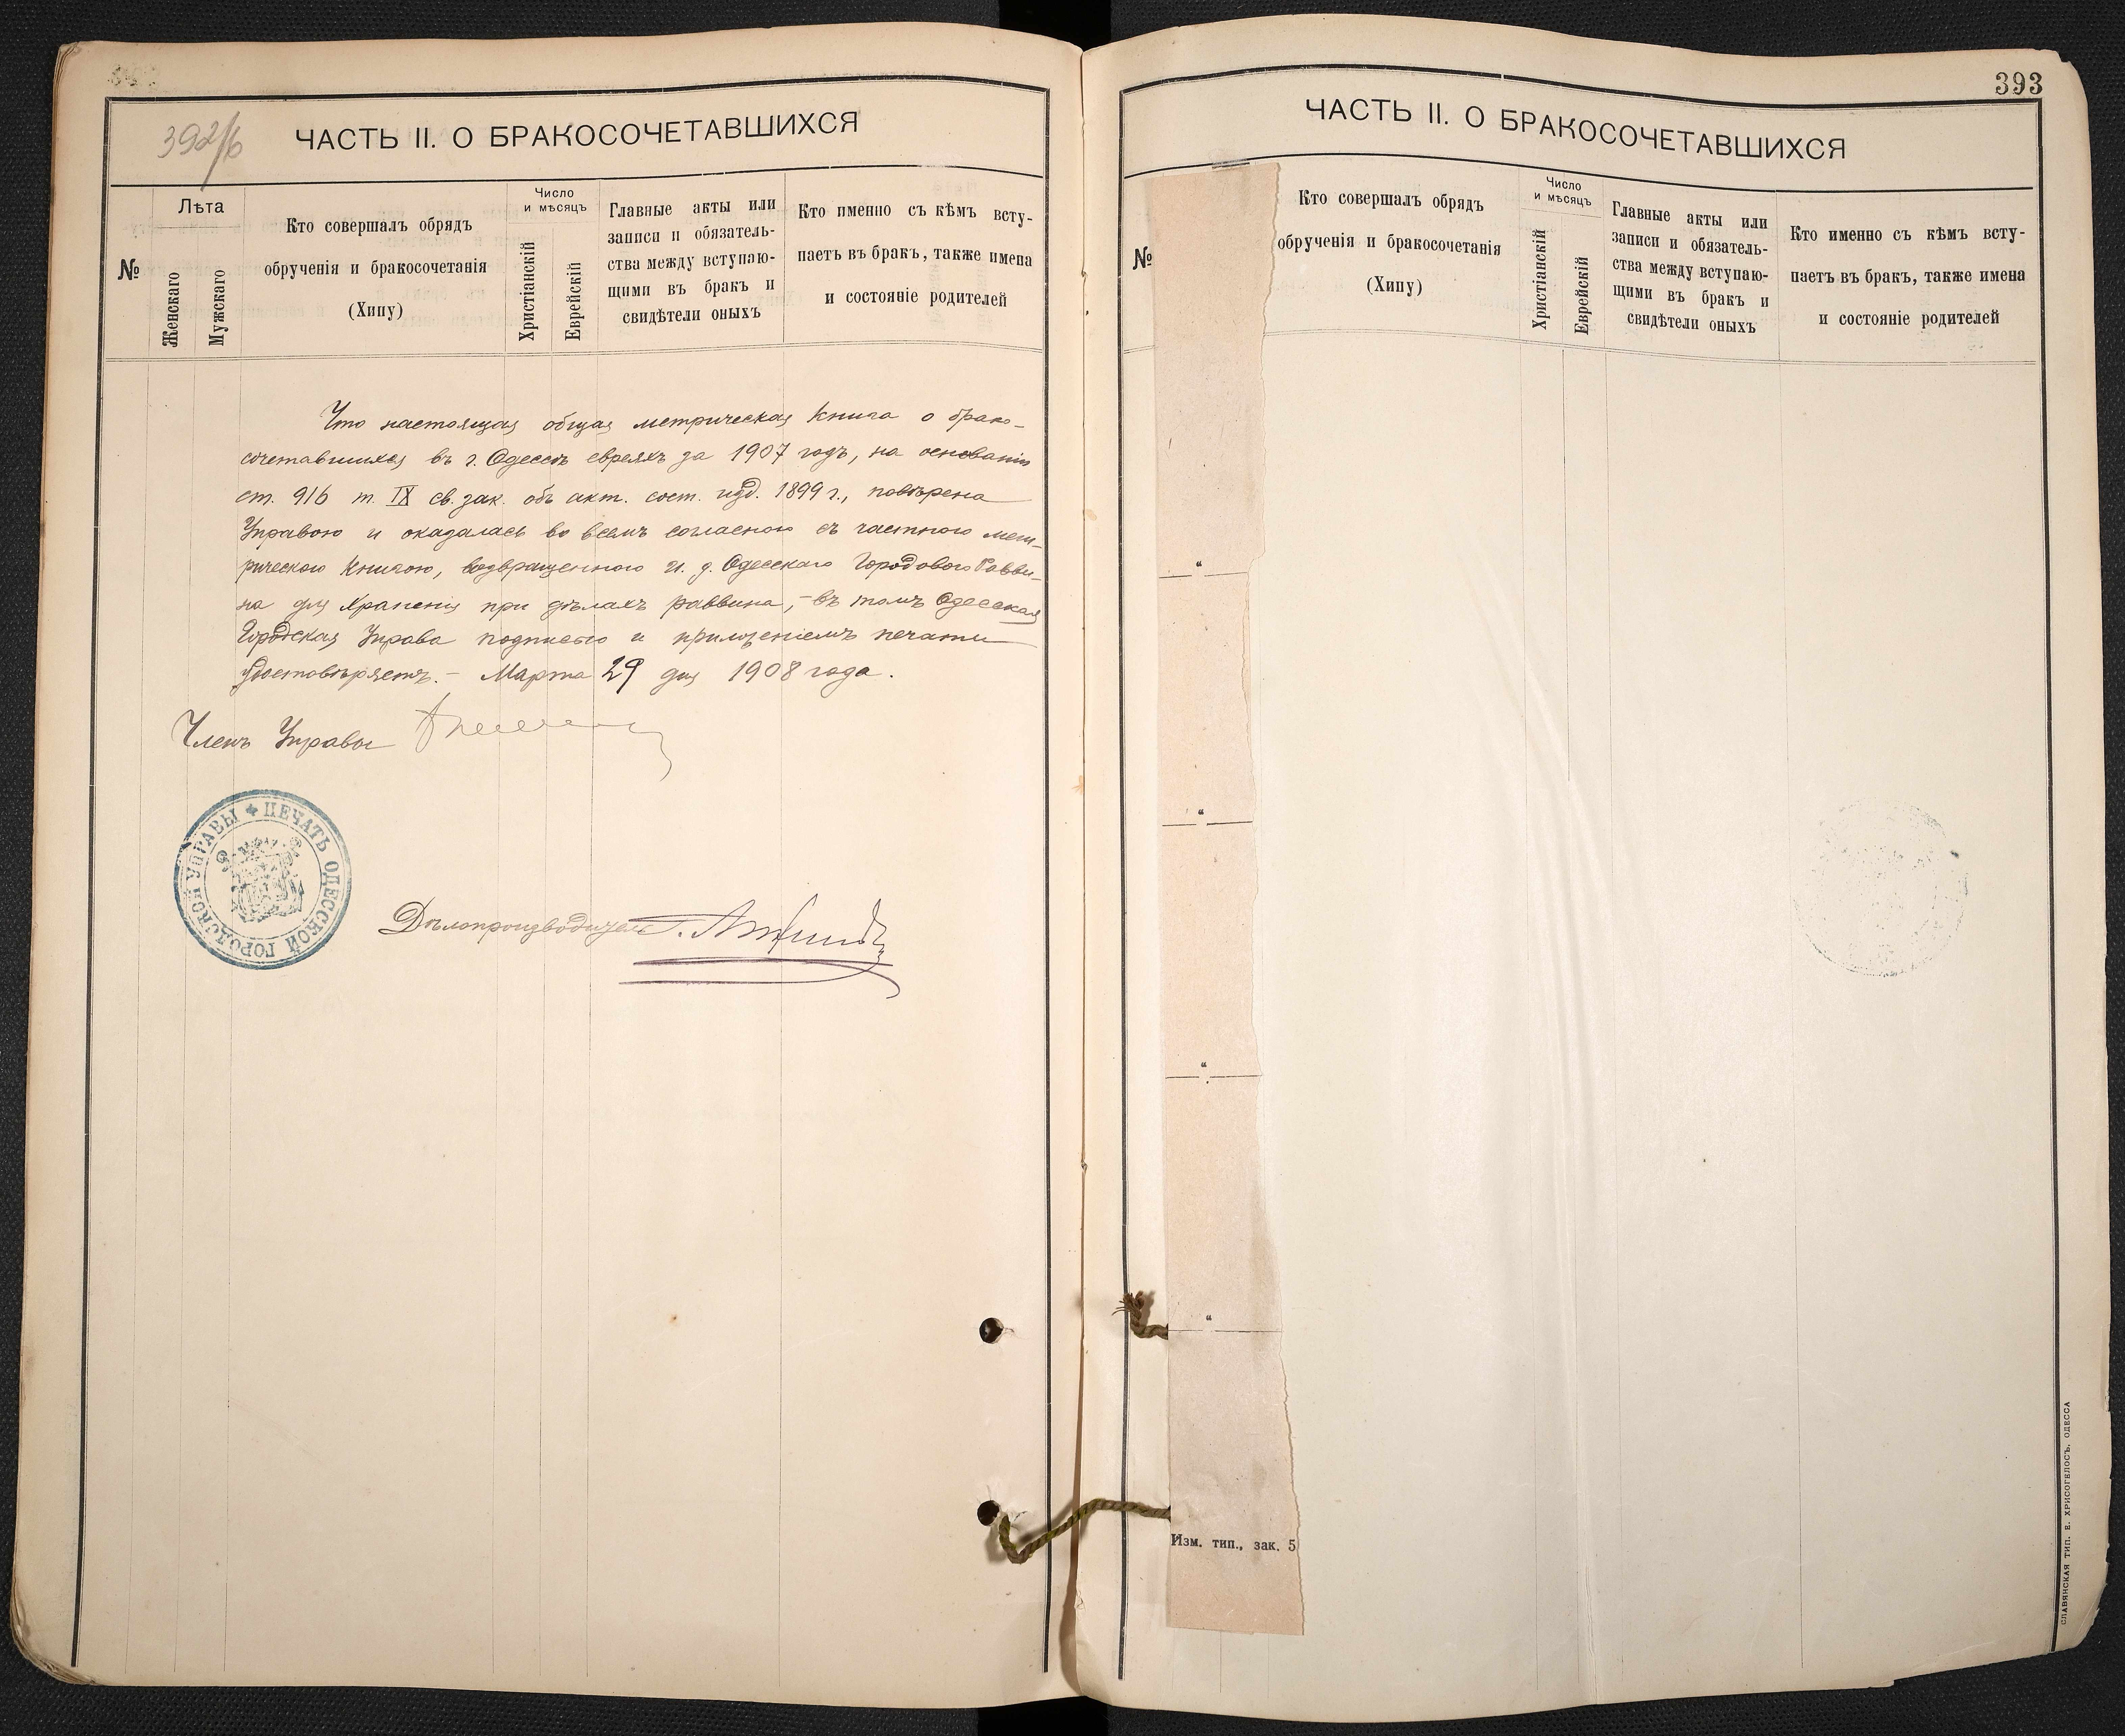 392/б
ЧАСТЬ II. О БРАКОСОЧЕТАВШИХСЯ
№
Лѣта
Женскаго
Мужскаго
Кто совершалъ обрядъ
обрученія и бракосочетанія
(Хипу)
Число
и мѣсяцъ
Христіанскій
Еврейскій
Главные акты или
записи и обязатель-
ства между вступаю-
щими въ бракъ и
свидѣтели оныхъ
Кто именно съ кѣмъ всту-
паетъ въ бракъ, также имена
и состояніе родителей
Что настоящая общая метрическая книга о брако-
сочетавшихся въ г. Одессѣ евреяхъ за 1907 годъ, на основаніи
ст. 916 т. IX св. зак. объ акт. сост. изд. 1899 г., повѣрена
Управою и оказалась во всемъ согласною съ частною мет-
рическою книгою, возвращенною и. д. Одесскаго Городового Равви-
на для храненія при дѣлахъ раввина, - въ томъ Одесская
Городская Управа подписью и приложеніемъ печати
удостовѣряетъ. - Марта 29 дня 1908 года.
Членъ Управы
ПЕЧАТЬ ОДЕССКОЙ ГОРОДСКОЙ УПРАВЫ
Дѣлопроизводитель
393
ЧАСТЬ II. О БРАКОСОЧЕТАВШИХСЯ
№
Кто совершалъ обрядъ
обрученія и бракосочетанія
(Хипу)
Число
и мѣсяцъ
Христіанскій
Еврейскій
Главные акты или
записи и обязатель-
ства между вступаю-
щими въ бракъ и
свидѣтели оныхъ
Кто именно съ кѣмъ всту-
паетъ въ бракъ, также имена
и состояніе родителей
Изм. тип., зак. 5
СЛАВЯНСКАЯ ТИП. Е. ХРИСОГЕЛОСЪ. ОДЕССА